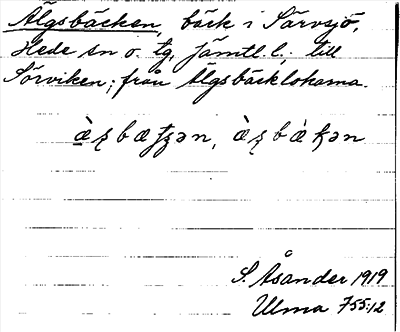 Älgsbäcken, bäck i Särvsjö,
Hede sn o. tg, Jämtl. l., till
Sörviken; från Älgsbäcklokarna.
S. Åsander 1919
Ulma 755:12